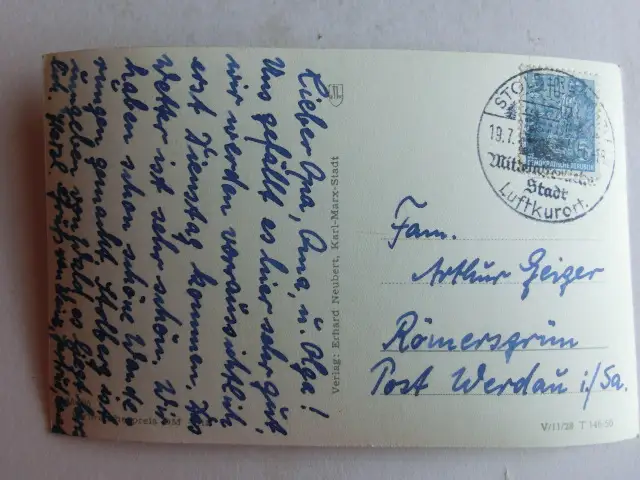 Lieber Opa, Oma, u. Olga!
Uns gefällt es hier sehr gut,
wir werden voraussichtlich
erst Dienstag kommen. Das
Wetter ist sehr schön. Wir
haben schon schöne Wande
rungen gemacht. Stolberg ist
umgeben von Wald, es
Verlag: Erhard Neubert, Karl-Marx-Stadt
STO
19.7.
Mittelalterliche
Stadt
Luftkurort.
Fam.
Arthur Geiger
Römersgrün
Post Werdau i/Sa.
V/11/28 T 146/59